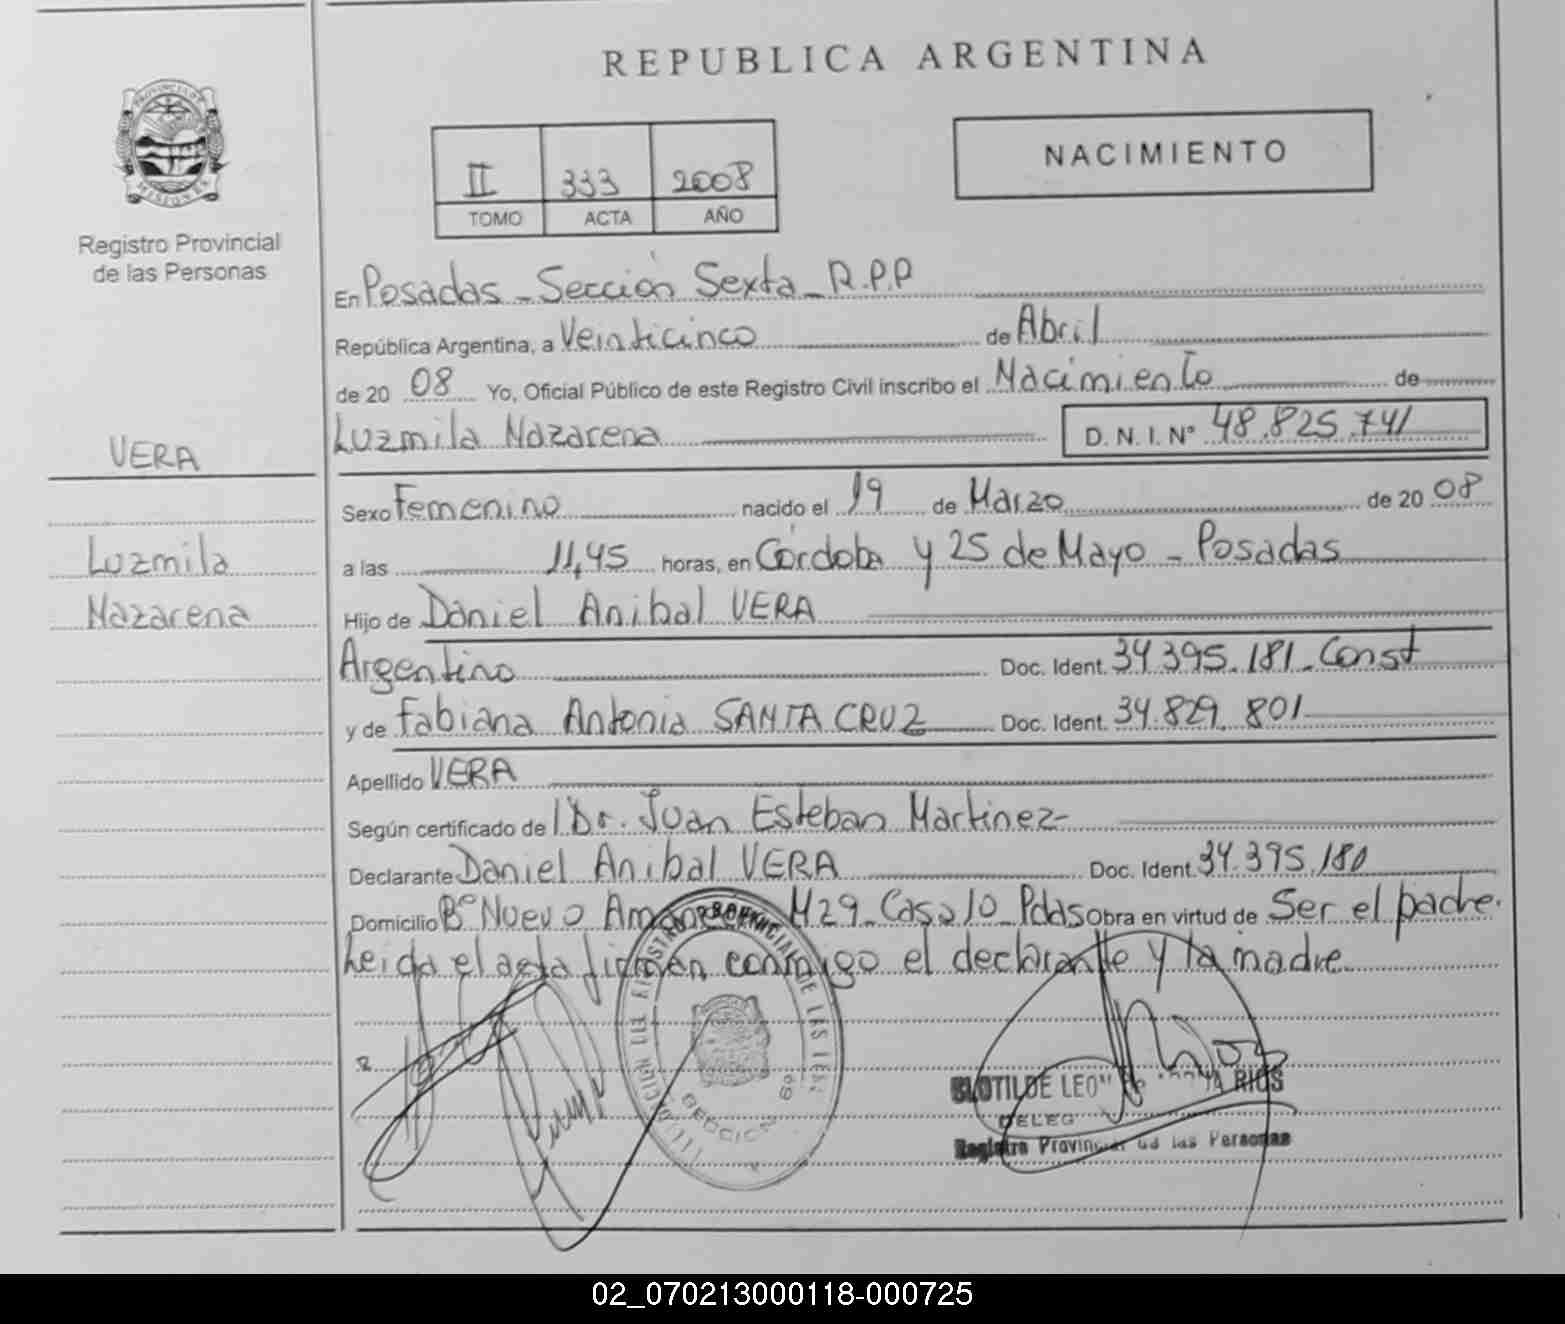 REPUBLICA ARGENTINA
PROVINCIA DE
MISIONES
Registro Provincial
de las Personas
II 333 2008
TOMO ACTA AÑO
NACIMIENTO
En Posadas - Sección Sexta - R.P.P
República Argentina, a Veinticinco de Abril
de 20 08 Yo, Oficial Público de este Registro Civil inscribo el Nacimiento de
Luzmila Nazarena D. N. I. N° 48.825.741
VERA
Luzmila
Nazarena
Sexo Femenino nacido el 19 de Marzo de 20 08
a las 11,45 horas, en Córdoba y 25 de Mayo - Posadas
Hijo de Daniel Anibal VERA
Argentino Doc. Ident. 34.395.181 - Const
y de Fabiana Antonia SANTA CRUZ Doc. Ident. 34.829.801
Apellido VERA
Según certificado de l Dr. Juan Esteban Martinez
Declarante Daniel Anibal VERA Doc. Ident. 34.395.180
Domicilio B° Nuevo M29 - Casa 10 - Pdas Obra en virtud de Ser el padre.
Leida el acta firman conmigo el declarante y la madre
PROVINCIAL DE LAS
SECCION 6a
CLOTILDE RIOS
DELEG
Registro Provincial de las Personas
02_070213000118-000725